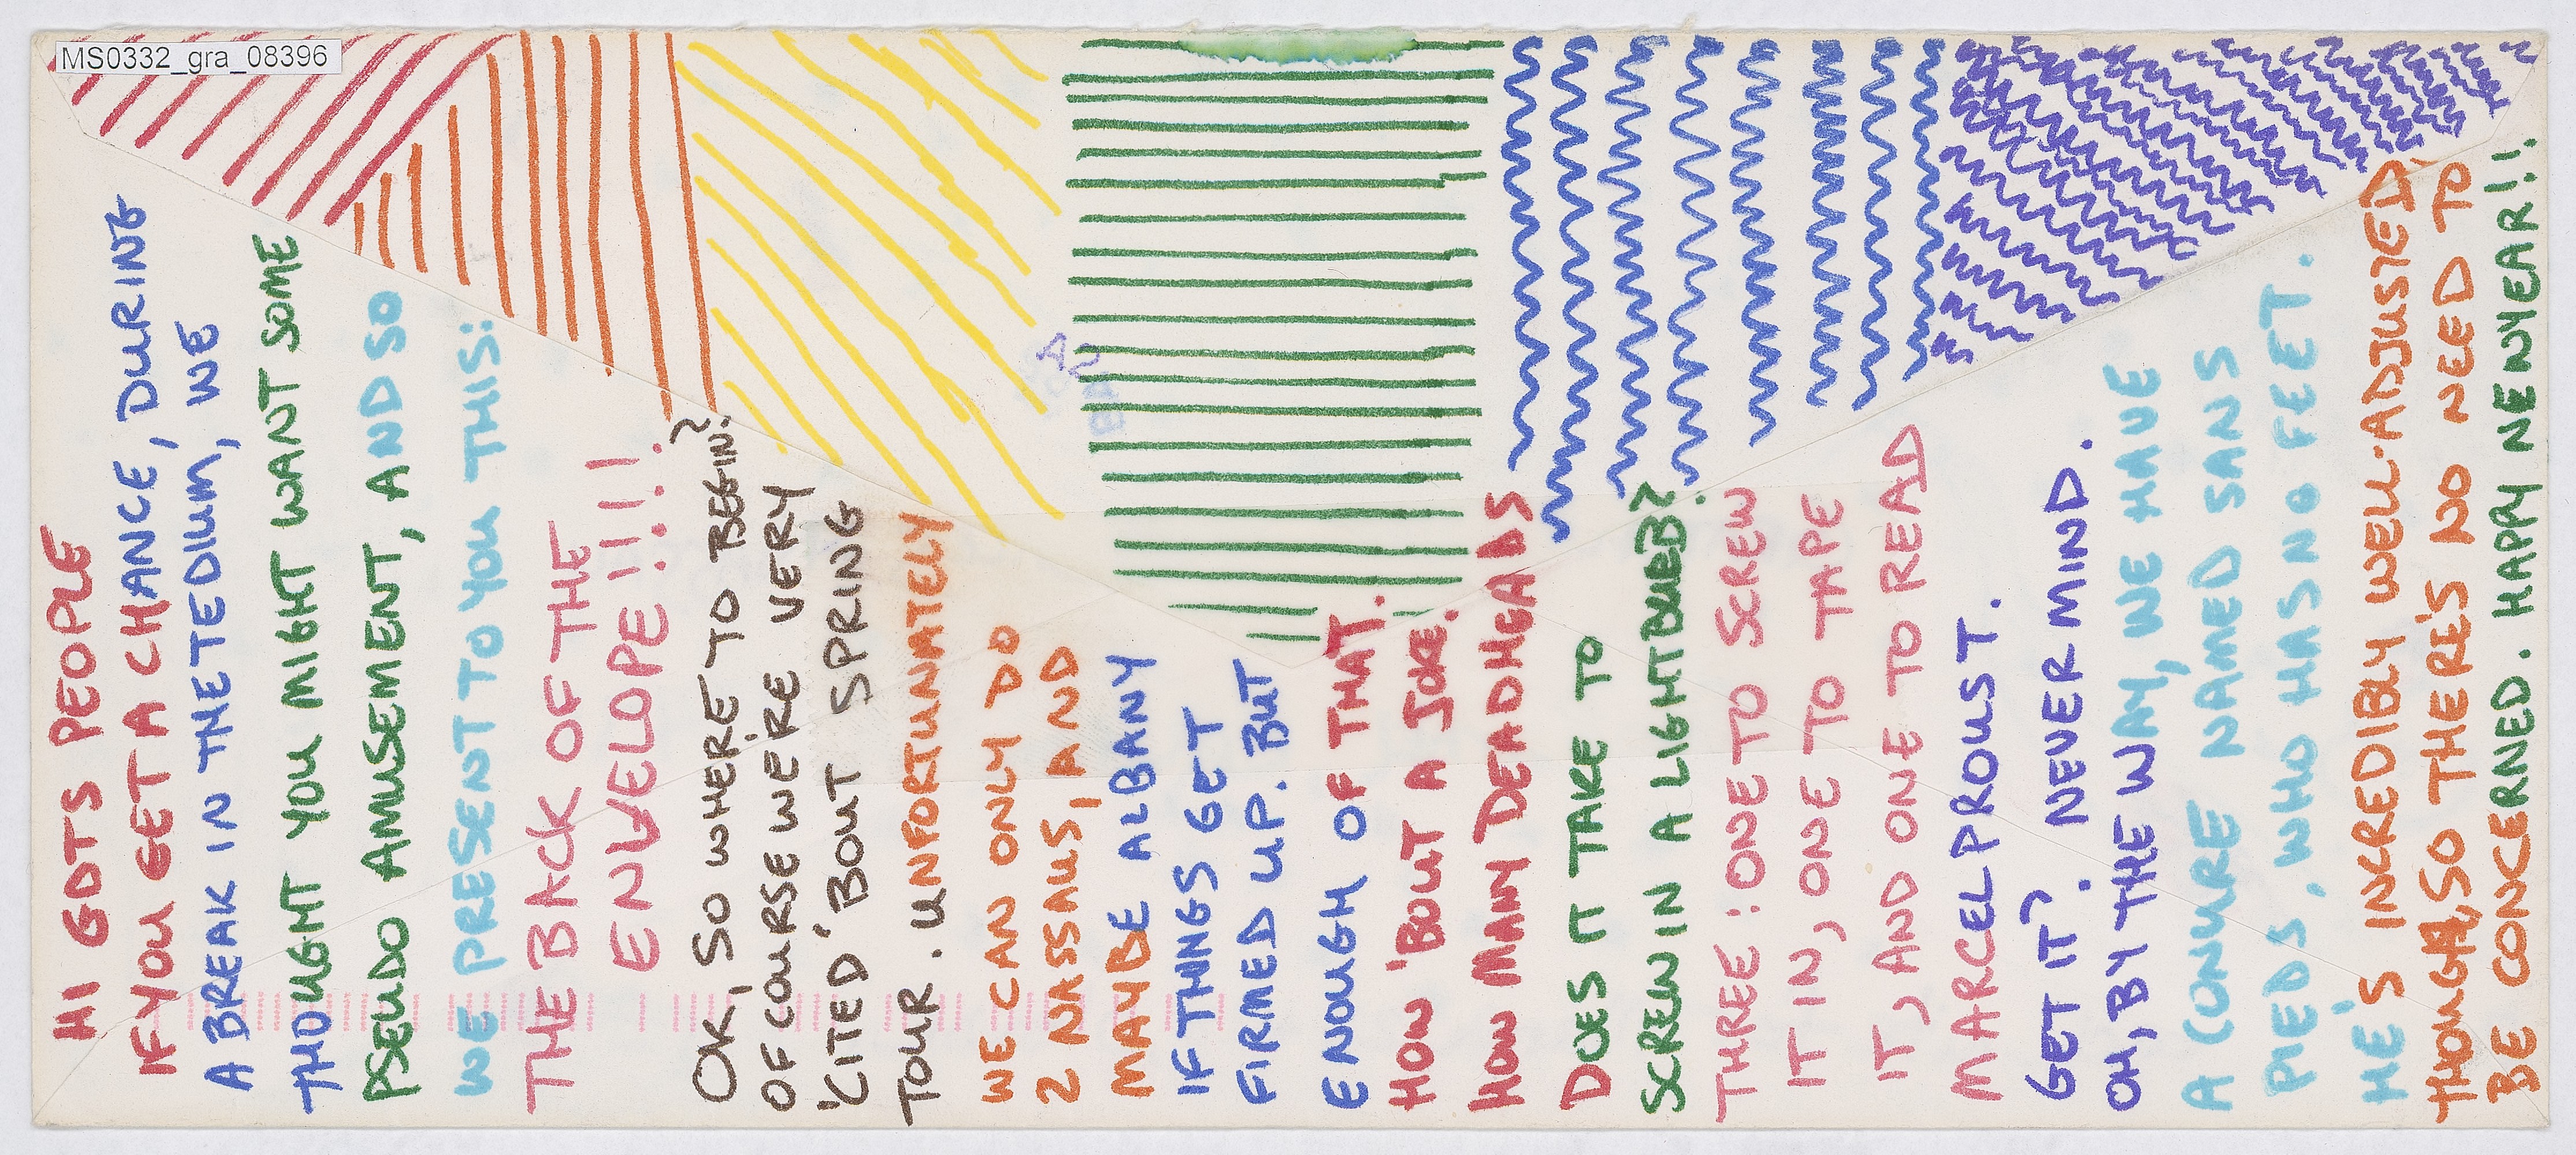 MS0332_gra_08396
HI GDTS PEOPLE
IF YOU GET A CHANCE, DURING
A BREAK IN THE TEDIUM, WE
THOUGHT YOU MIGHT WANT SOME
PSEUDO AMUSEMENT, AND SO
WE PRESENT TO YOU THIS:
THE BACK OF THE
ENVELOPE!!!!!
OK, SO WHERE TO BEGIN?
OF COURSE WE'RE VERY
'CITED 'BOUT SPRING
TOUR. UNFORTUNATELY
WE CAN ONLY DO
2 NASSAUS, AND
MAYBE ALBANY
IF THINGS GET
FIRMED UP. BUT
ENOUGH OF THAT.
HOW 'BOUT A JOKE.
HOW MANY DEADHEADS
DOES IT TAKE TO
SCREW IN A LIGHTBULB?
THREE: ONE TO SCREW
IT IN, ONE TO TAPE
IT, AND ONE TO READ
MARCEL PROUST.
GET IT? NEVER MIND.
OH, BY THE WAY, WE HAVE
A CONURE NAMED SANS
PIEDS, WHO HAS NO FEET.
HE'S INCREDIBLY WELL-ADJUSTED
THOUGH, SO THERE'S NO NEED TO
BE CONCERNED. HAPPY NEW YEAR!!